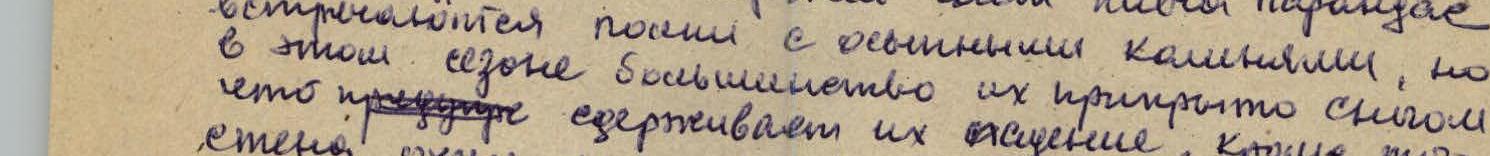 встречаются полки с осыпными камнями, но
в этом сезоне большинство их прикрыто снегом
что сдерживает их падение. Кроме
стена